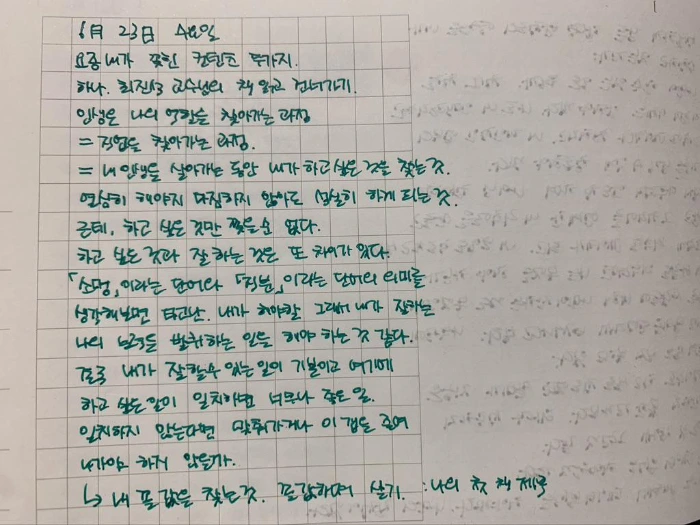 6月 23日 수요일
요즘 내가 꽂힌 컨텐츠 두가지.
하나. 최진석 교수님의 책 읽고 건너가기.
인생은 나의 역할을 찾아가는 과정
= 직업을 찾아가는 과정.
= 내 인생을 살아가는 동안 내가 하고 싶은 것을 찾는 것.
열심히 해야지 다짐하지 않아도 성실히 하게 되는 것.
근데, 하고 싶은 것만 찾을 순 없다.
하고 싶은 것과 잘 하는 것은 또 차이가 있다.
「소명」이라는 단어와 「직분」이라는 단어의 의미를
생각해보면 타고난. 내가 해야할 그래서 내가 잘하는
나의 능력을 발휘하는 일을 해야 하는 것 같다.
결국 내가 잘할수 있는 일의 기본이고 여기에
하고 싶은 일이 일치하면 너무나 좋은 일.
일치하지 않는다면 맞춰가거나 이 갭을 줄여
나가야 하지 않을까.
↳ 내 꼴값을 찾는 것. 꼴값하며 살기. : 나의 첫 책 제목